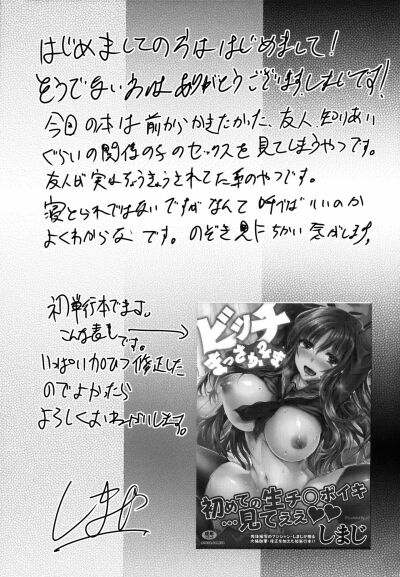 はじめましての方ははじめまして！
そうでない方はありがとうございます！しまじです！
今回の本は前からかきたかった、友人、知りあい
ぐらいの関係の子のセックスを見てしまうやつです。
友人が実はちょうきょうされてた系のやつです。
寝とられではないですがなんて呼べばいいのか
よくわからないです。のぞき見にちかい気がします。
初単行本でます。
こんな表し
です。
いっぱい加ひつ修正した
のでよかったら
よろしくおねがいします。
しまじ
ビッチ
初めての生チ○ポイキ
…見てぇぇ♥♥
しまじ